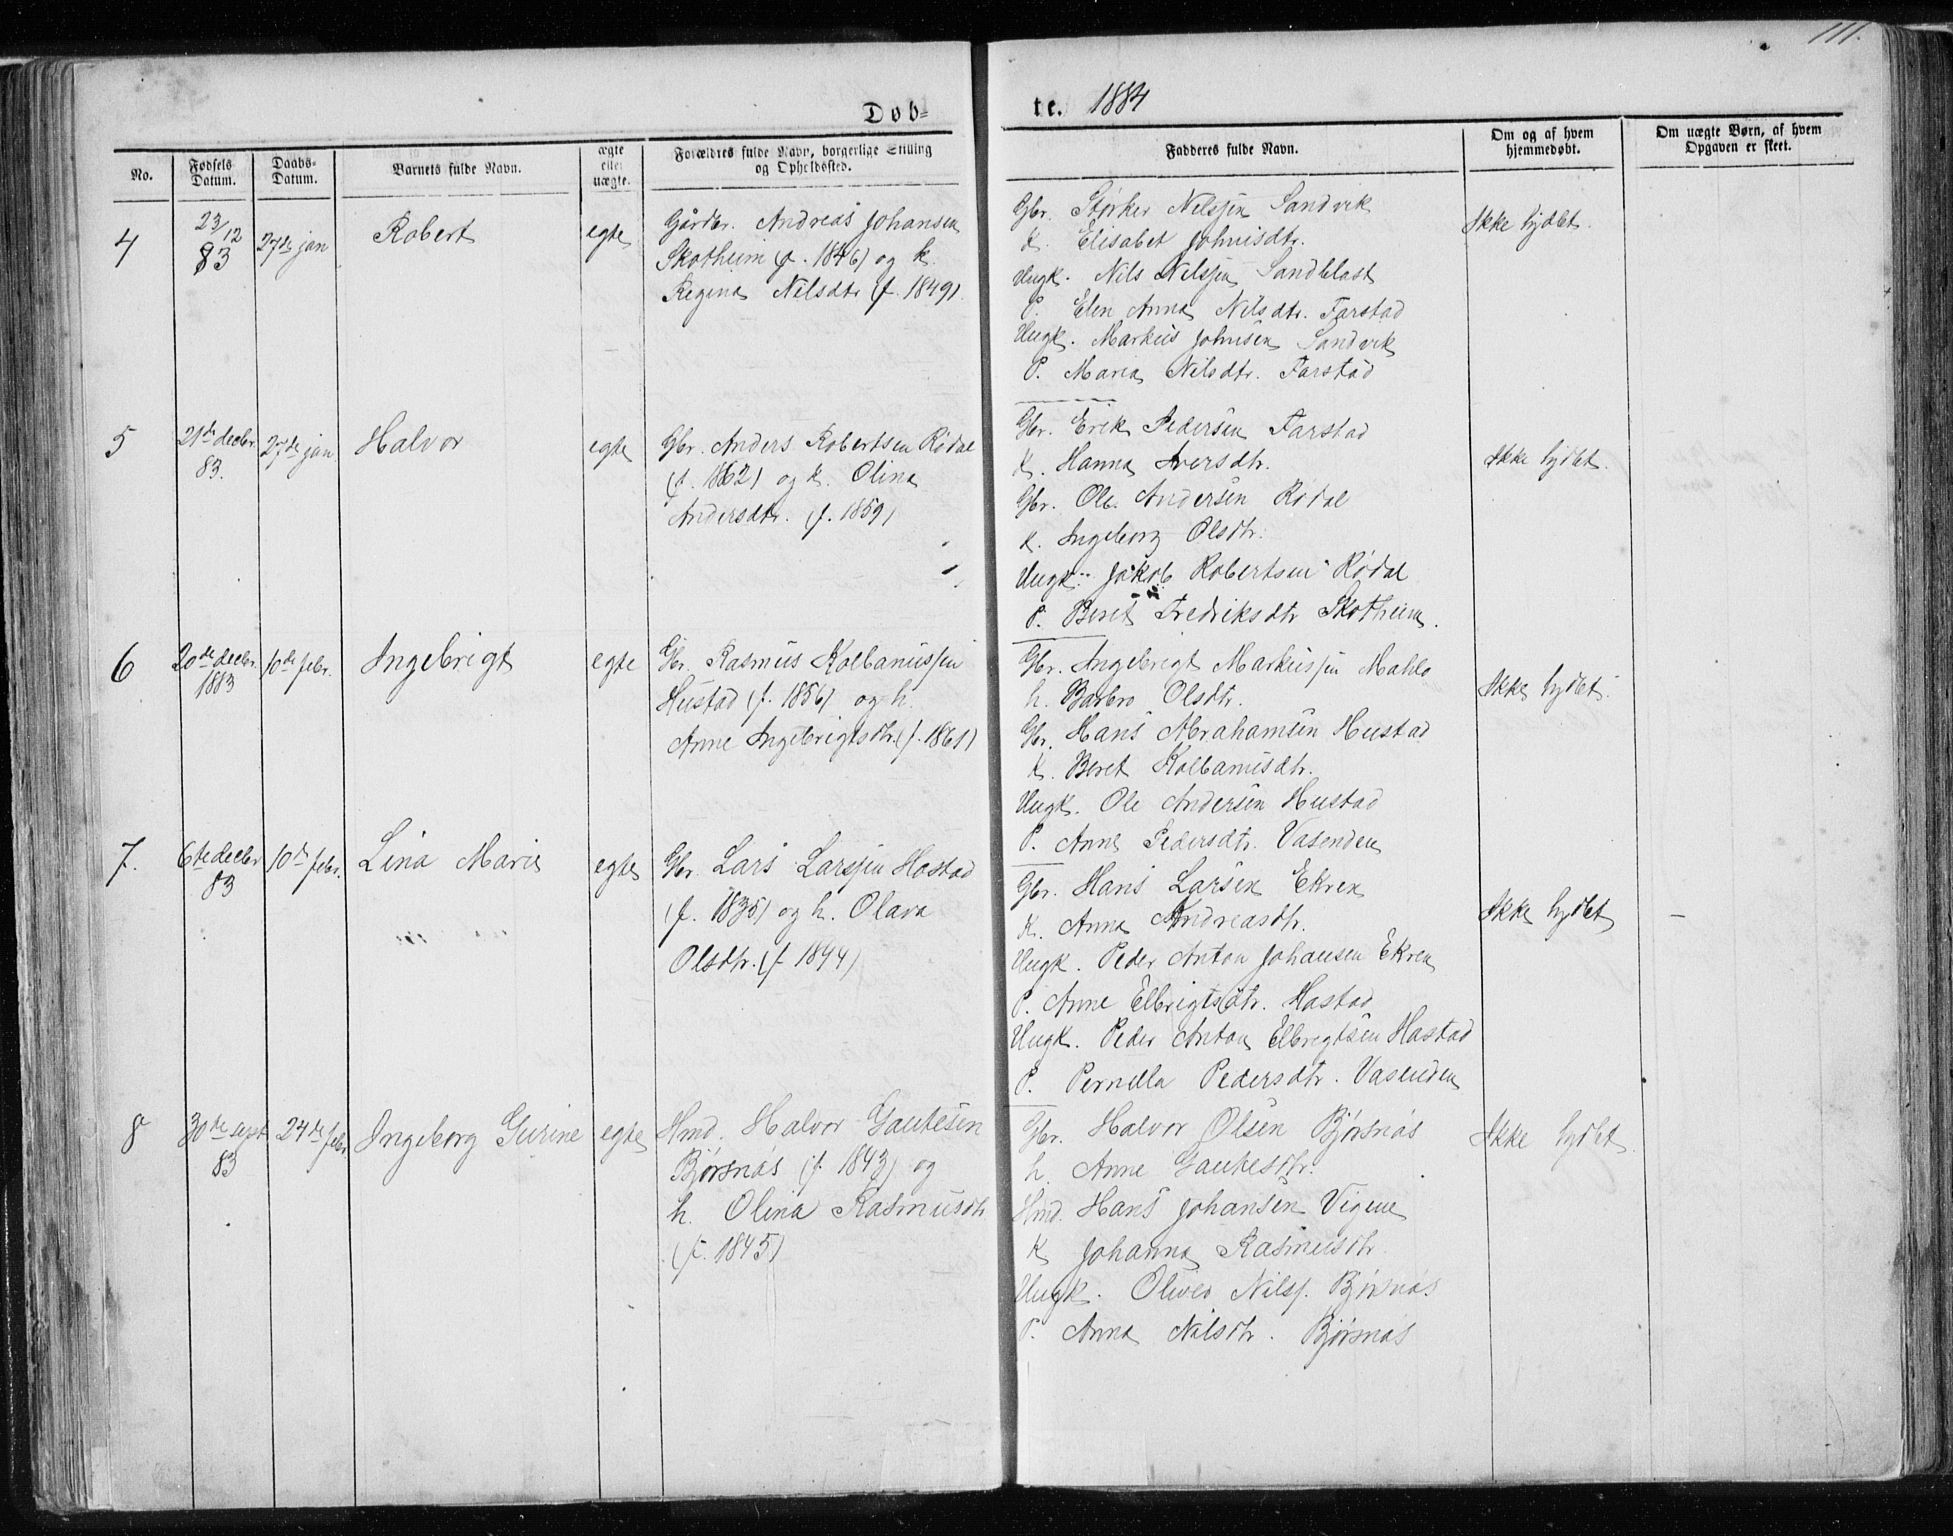 111.
Døb=
te. 1884
No.
Fødsels Datum.
Daabs-Datum.
Barnets fulde Navn.
ægte eller uægte.
Forældres fulde Navn, borgerlige Stilling og Opholdssted.
Fadderes fulde Navn.
Om og af hvem hjemmedøbt.
Om uægte Børn, af hvem Opgaven er skeet.
4
23/12 83
27de jan
Robert
egte
Gårdbr. Andreas Johansen
Skotheim (f. 1846) og k.
Regina Nilsdtr (f. 1849).
Gbr. Størker Nilssen Sandvik
K. Elisabet Johnisdtr.
Ungk. Nils Nilssen Sandblast
P. Elen Anna Nilsdtr. Farstad
Ungk. Markus Johnisen Sandvik
P. Maria Nilsdtr. Farstad
Ikke hjdbt.
5
21de decbr. 83.
27de jan
Halvor
egte
Gbr. Anders Robertsen Rødal
(f. 1862) og k. Olina
Andersdtr. (f. 1859)
Gbr. Erik Pedersen Farstad
K. Hanna Iversdtr.
Gbr. Ole Andersen Rødal
K. Ingeborg Olsdtr.
Ungk. Jakob Robertsen Rødal
P. Beret Fredriksdtr Skotheim.
Ikke hjdbt.
6
20de decbr. 1883
10de febr.
Ingebrigt
egte
Gbr. Rasmus Kolbanussen
Hustad (f. 1856) og h.
Anne Ingebrigtsdtr. (f. 1861)
Gbr. Ingebrigt Markussen Mahlo
h. Barbro Olsdtr.
Gbr. Hans Abrahamsen Hustad
K. Beret Kolbanusdtr.
Ungk. Ole Andersen Hustad
P. Anne Pedersdtr. Vasenden
Ikke hjdbt.
7.
6te decbr 83
10de febr.
Lina Marie
egte
Gbr. Lars Larssen Hostad
(f. 1835) og h. Olava
Olsdtr. (f. 1844)
Gbr. Hans Larsen Ekren
K. Anna Andreasdtr.
Ungk. Peder Anton Johansen Ekren
P. Anne Elbrigtsdtr. Hostad
Ungk. Peder Anton Elbrigtsen Hostad
P. Pernella Pedersdtr. Vasenden
Ikke hjdbt
8
30te sept 83
24de febr
Ingeborg Gurine
egte
Hmd. Halvor Gautesen
Bjørsnås (f. 1843) og
h. Olina Rasmusdtr
(f. 1845)
Gbr. Halvor Olsen Bjørsnås
h. Anne Gautesdtr.
Hmd. Hans Johansen Vigene
K Johanna Rasmusdtr.
Ungk. Oliver Nilss. Bjørsnås
P. Anna Nilsdtr. Bjørsnås
Ikke hjdbt.